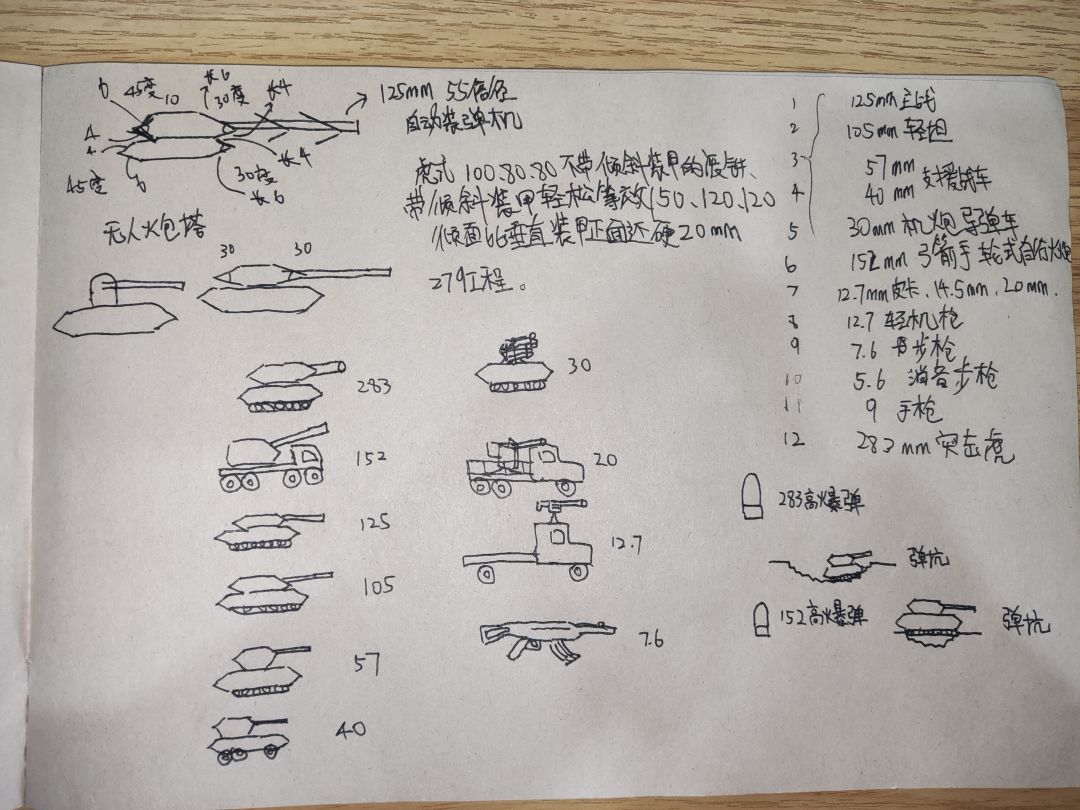 6 45度 10 长6 30度 长4
4
4
45度 6 30度 长6 长4
125mm 55倍径
自动装弹机
虎式 100.80.80 不带倾斜装甲的废铁、
带倾斜装甲轻松等效150、120、120
倾面比垂直装甲正面还硬20mm
279工程。
无人火包塔
30 30
283
152
125
105
57
40
30
20
12.7
7.6
1 125mm 主战
2 105mm 轻坦
3 57mm 支援战车
4 40mm
5 30mm 机炮导弹车
6 152mm 弓箭手 轮式自行火炮
7 12.7mm 皮卡、14.5mm、20mm.
8 12.7 轻机枪
9 7.6 步枪
10 5.6 消音步枪
11 9 手枪
12 283mm 突击虎
283高爆弹
弹坑
152高爆弹
弹坑